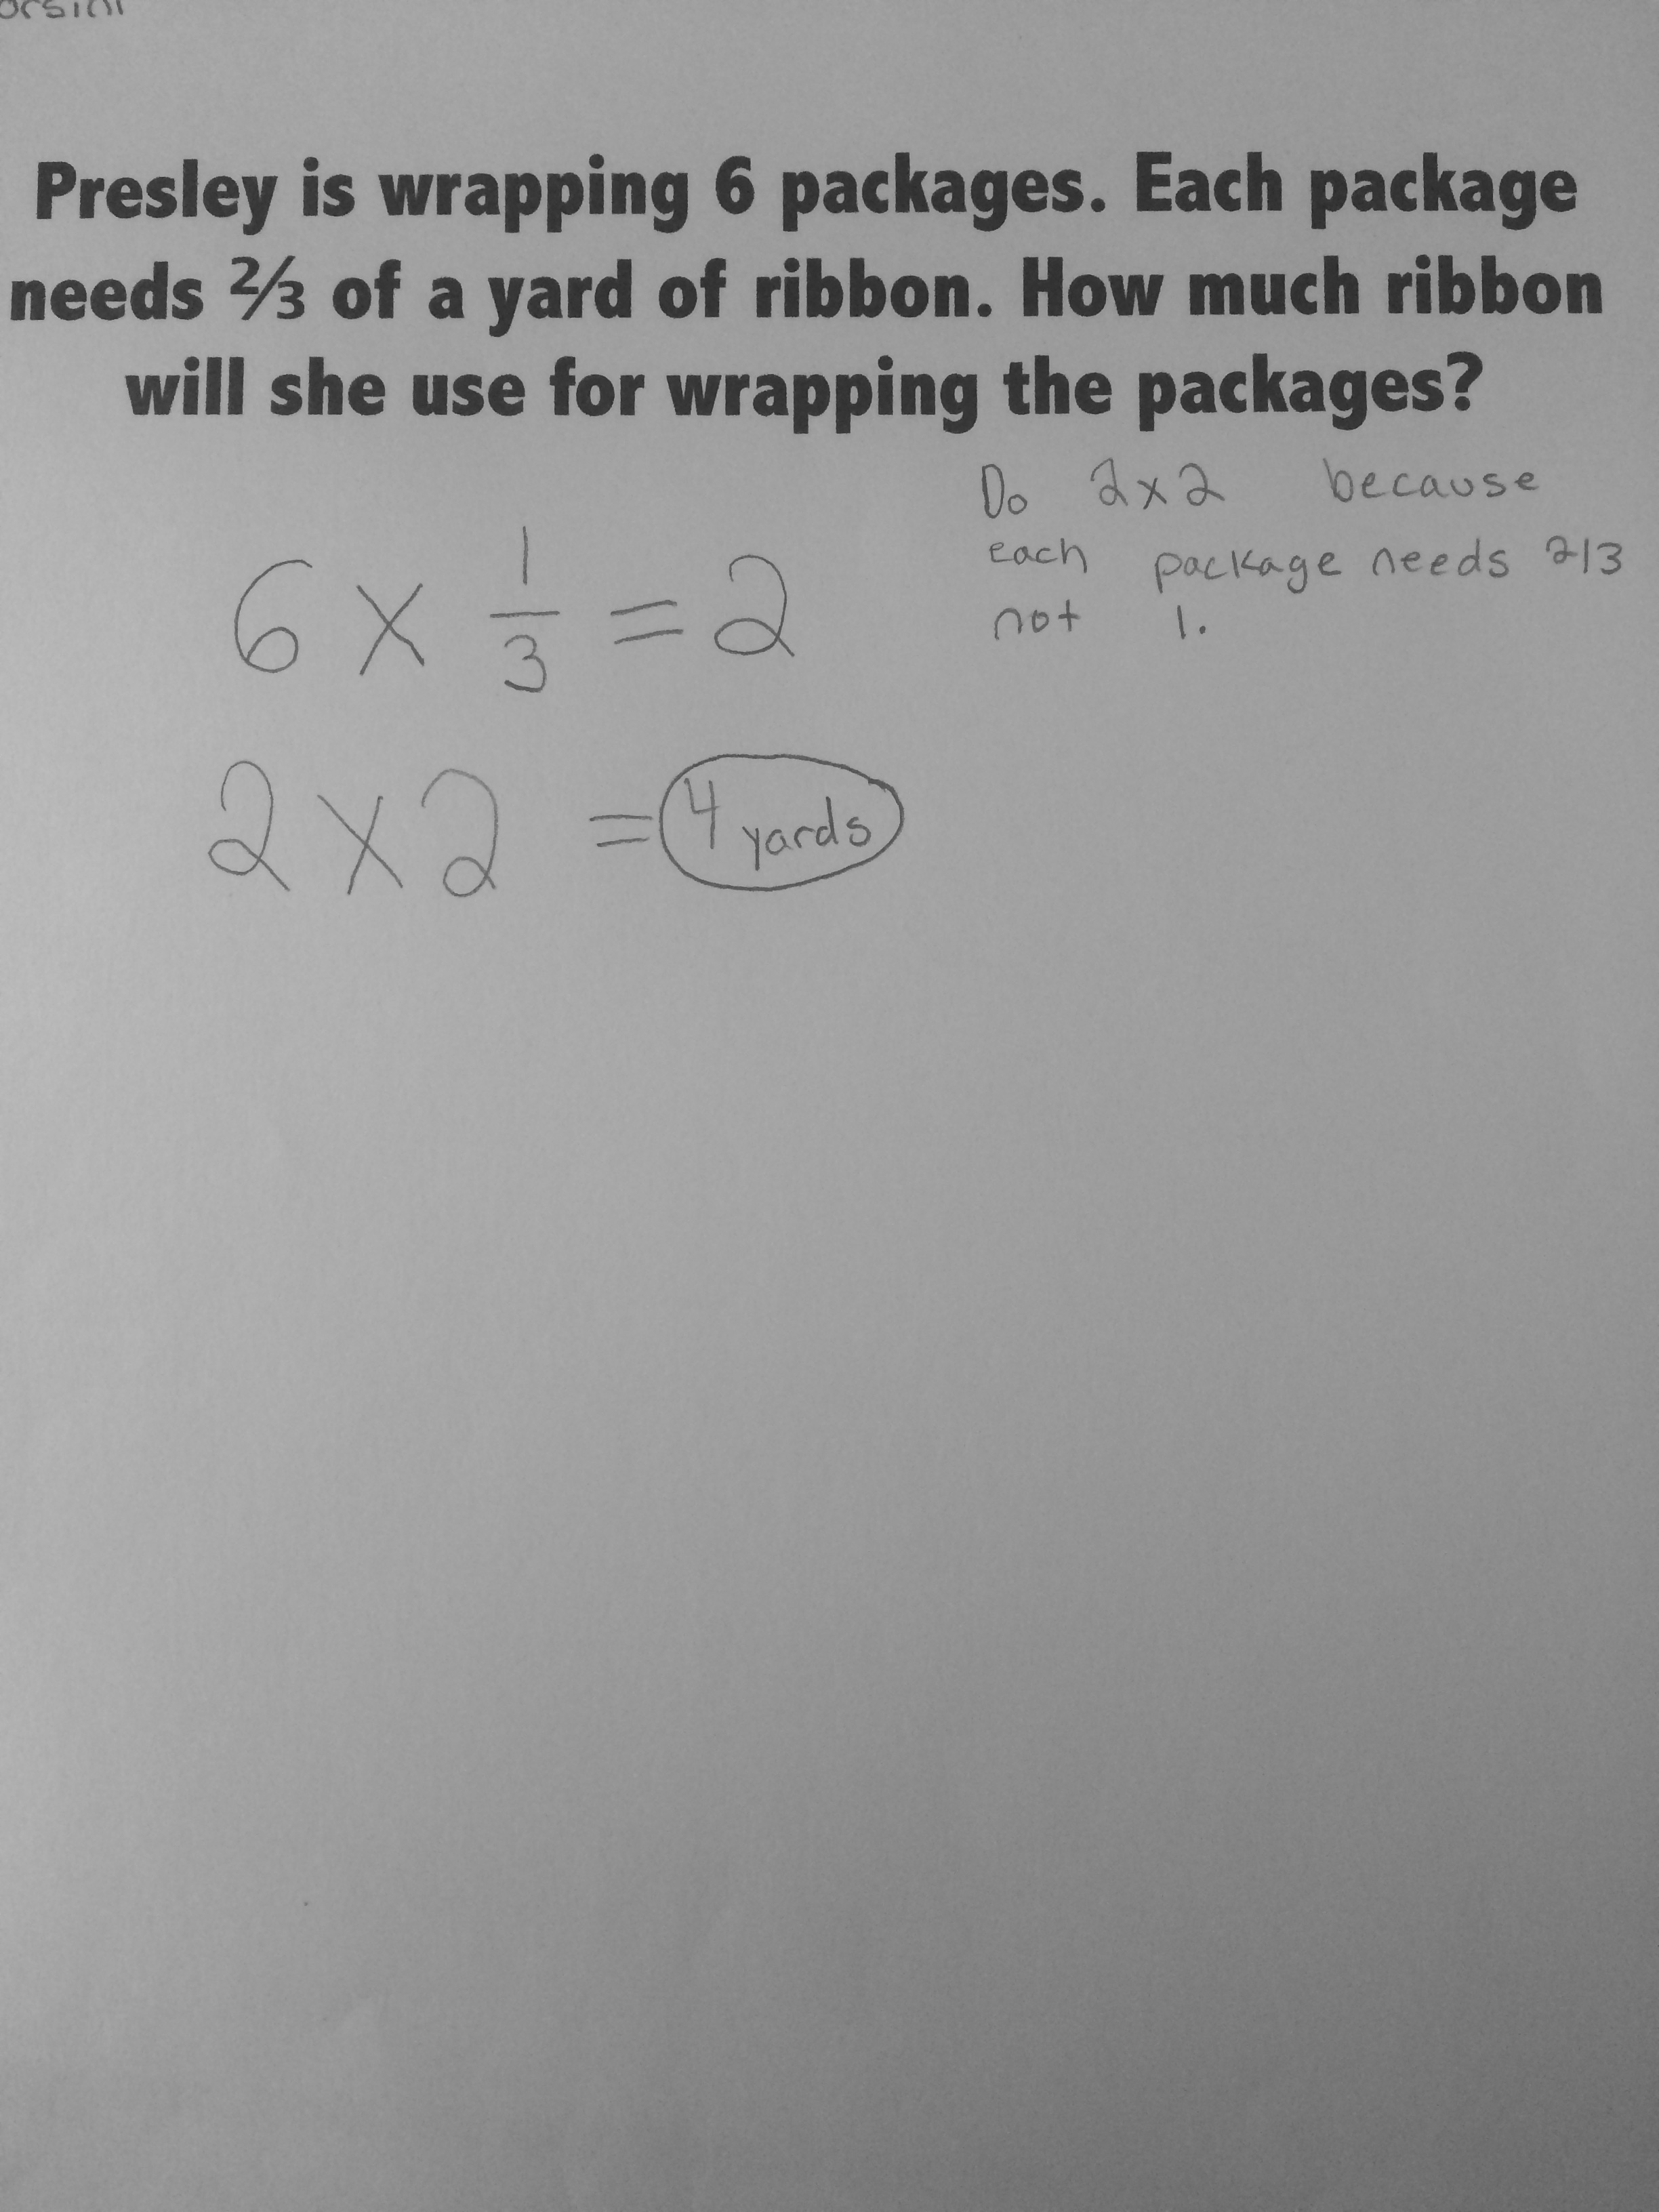 Presley is wrapping 6 packages. Each package
needs ⅔ of a yard of ribbon. How much ribbon
will she use for wrapping the packages?
Do 2x2 because
each package needs 2/3
not 1.
6 x 1/3 = 2
2 x 2 = 4 yards